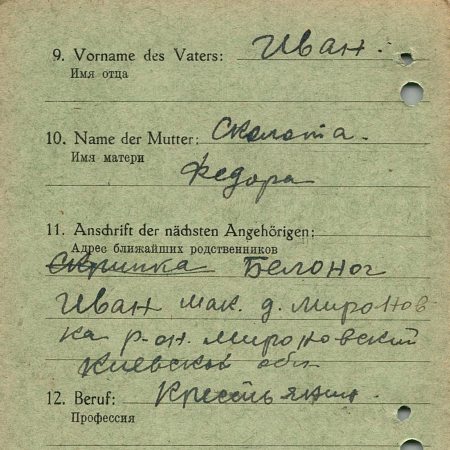 9. Vorname des Vaters: Иван.
Имя отца
10. Name der Mutter: Сколота.
Имя матери
Федора
11. Anschrift der nächsten Angehörigen:
Адрес ближайших родственников
Скрипка Белоног
Иван мак. д. Миронов-
ка р-он. Мироновский
Киевской обл
12. Beruf: Крестьянин.
Профессия